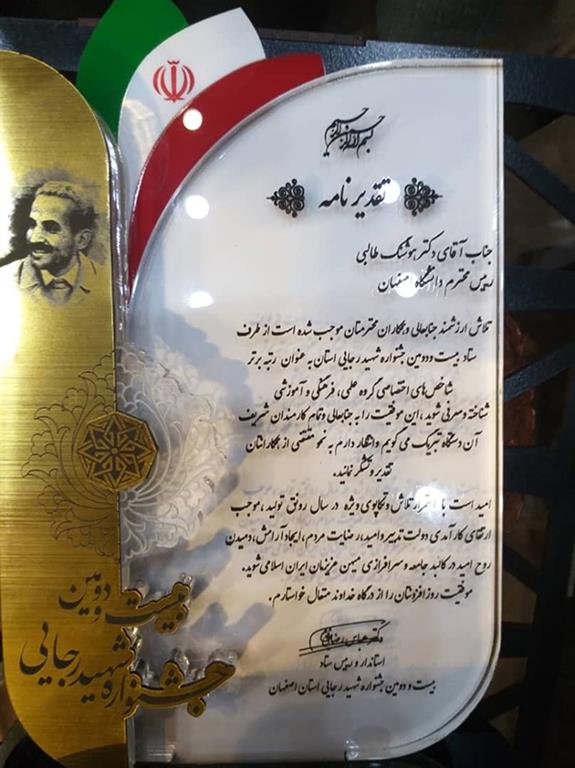 بسم الله الرحمن الرحیم
تقدیرنامه
جناب آقای دکتر هوشنگ طالبی
رییس محترم دانشگاه اصفهان
تلاش ارزشمند جنابعالی و همکاران محترمتان موجب شده است از طرف
ستاد بیست و دومین جشنواره شهید رجایی استان به عنوان رتبه برتر
شاخص‌های اختصاصی گروه علمی، فرهنگی و آموزشی
شناخته و معرفی شوید، این موفقیت را به جنابعالی و تمام کارمندان شریف
آن دستگاه تبریک می گویم و انتظار دارم به نحو مقتضی از همکارانتان
تقدیر و تشکر نمائید.
امید است با استمرار تلاش و تکاپوی ویژه در سال رونق تولید، موجب
ارتقای کارآمدی دولت تدبیر و امید، رضایت مردم، ایجاد آرامش، دمیدن
روح امید در کالبد جامعه و سرافرازی میهن عزیزمان ایران اسلامی شوید.
موفقیت روزافزونتان را از درگاه خداوند متعال خواستارم.
دکتر عباس رضایی
استاندار و رییس ستاد
بیست و دومین جشنواره شهید رجایی استان اصفهان
بیست و دومین
جشنواره شهید رجایی